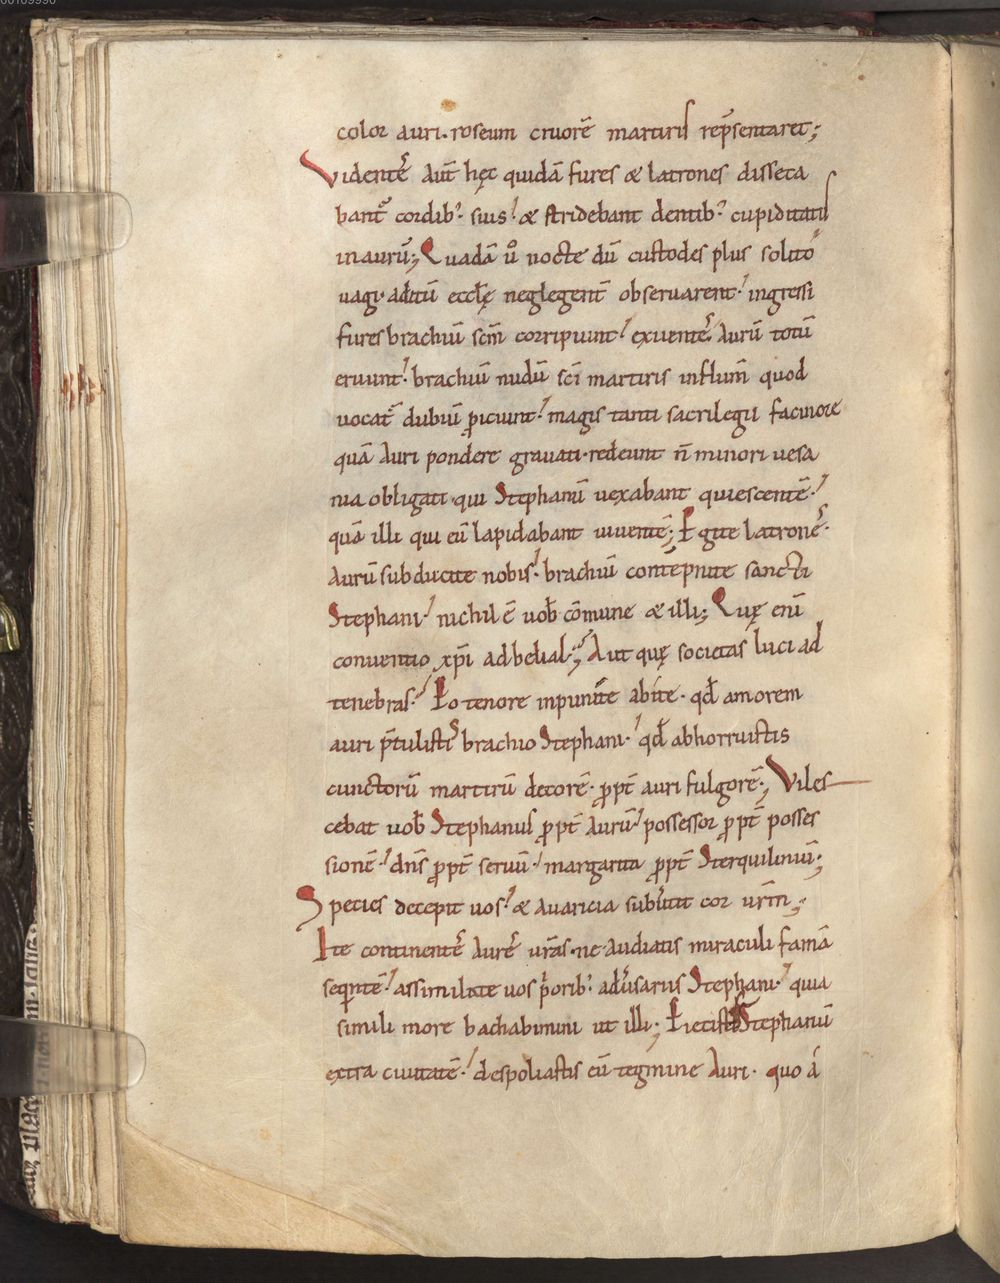 00109990
color auri. roseum cruorē martiris rep̄sentaret;
Videntes aut̄ hęc quidā fures & latrones disseca
bant᷑ cordib; suis. & stridebant dentib; cupiditatis
in aurū; Quadā u̅o nocte dū custodes plus solito
uagi. aditū eccl̄ę neglegent̄ obseruarent. ingressi
fures brachiū sc̄m corripiunt. exuentes Aurū totū
eruunt. brachiū nudū sc̄i martiris in flum̄ quod
uocat᷑ dubiū p̱iciunt. magis tanti sacrilegii facinore
quā Auri pondere grauati. redeunt n̄ minori uesa
nia obligati qui Stephanū uexabant quiescentē.
quā illi qui eū lapidabant uiuentē; Egite latrones.
Aurū subducite nobis. brachiū contēpnite sancti
Stephani. nichil ē uob̄ cōmune & illi; Quę enī
conuentio xp̄i ad belial; Aut quę societas luci ad
tenebras. Eo tenore inpunite abite. qd̄ amorem
auri p̄tulistis brachio Stephani. qd̄ abhorruistis
cunctorū martirū decorē. ꝓpt̄ auri fulgorē; Viles
cebat uob̄ Stephanus ꝓpt̄ Aurū. possessor ꝓpt̄ posses
sionē. dn̄s ꝓpt̄ seruū. margarita ꝓpt̄ Sterquiliniū;
Species decepit uos. & Auaricia subūtit cor ur̄m;
Ite continentes Aures ur̄as. ne Audiatis miraculi famā
seqͥntē. assimilate uos pͥorib; adūsariis Stephani. quia
simili more bachabimini ut illi; Eiecistis Stephanū
extra ciuitatē. despoliastis eū tegmine Auri. quo á